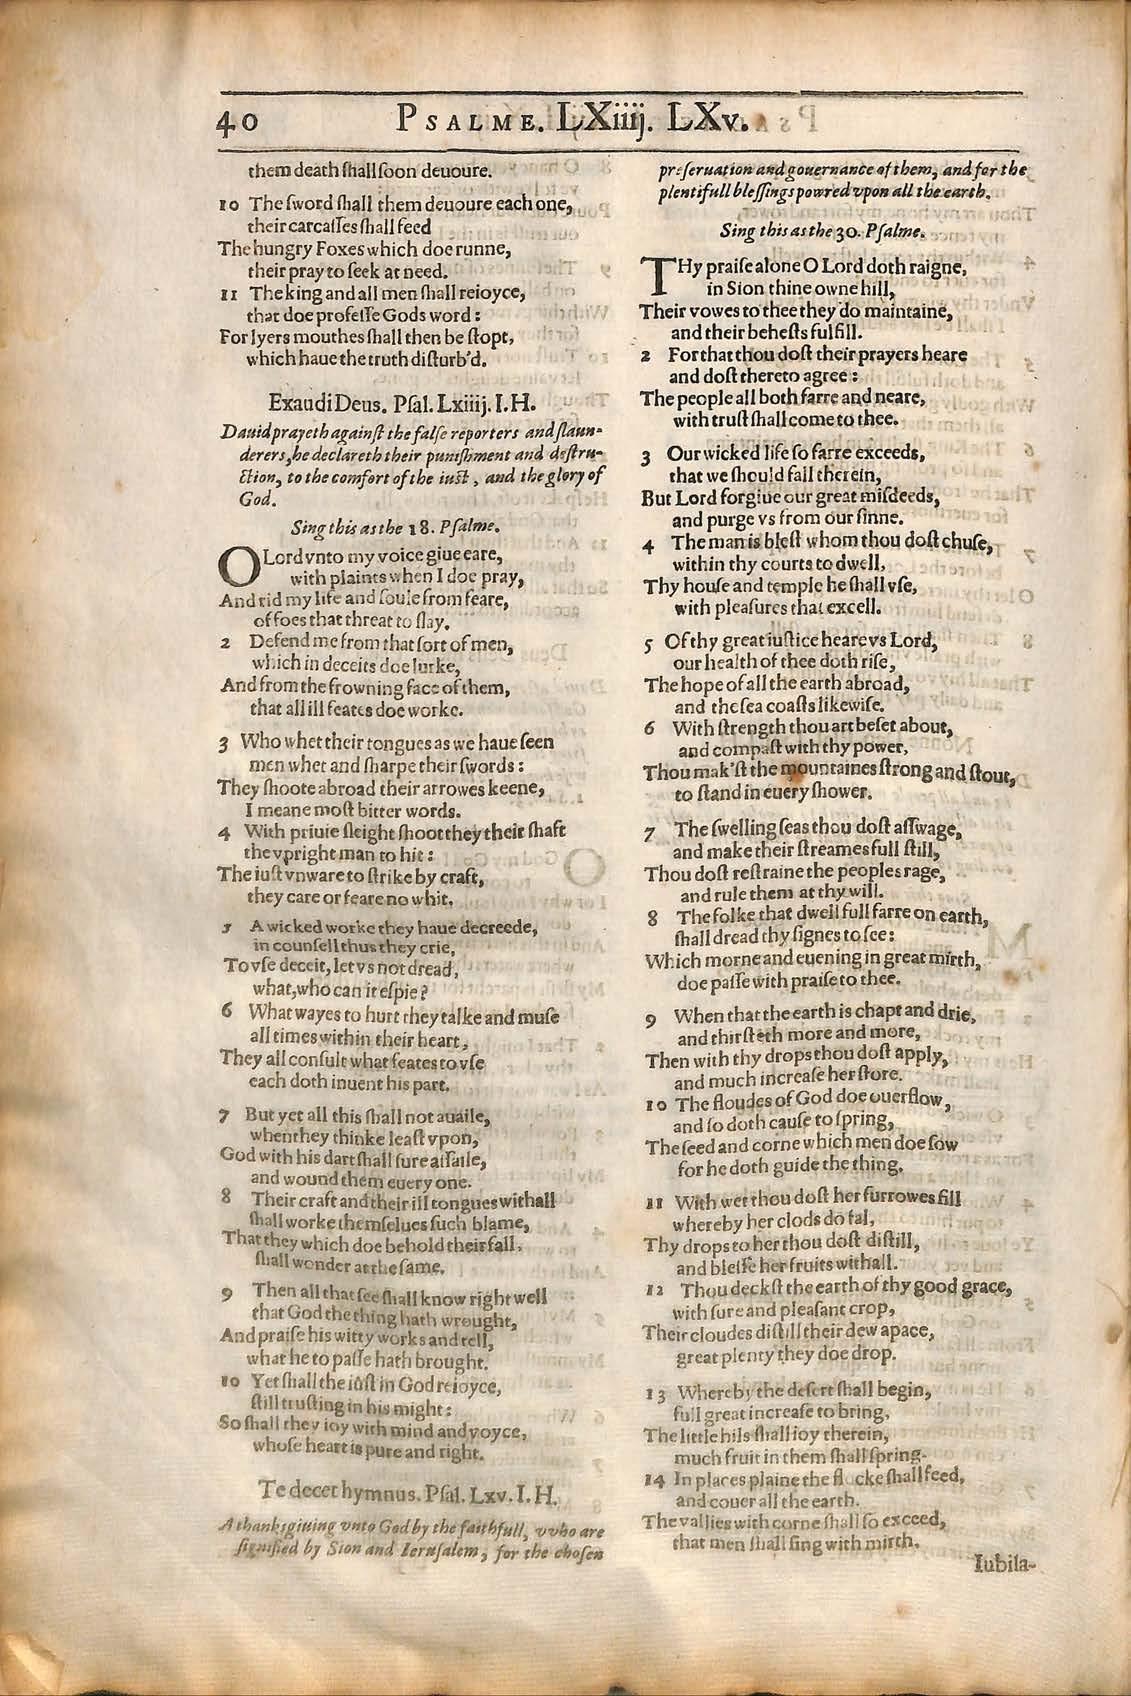 40 PSALME. LXiiij. LXv.
them death ſhall ſoon deuoure.
10 The ſword ſhall them deuoure each one,
their carcaſſes ſhall feed
The hungry Foxes which doe runne,
their pray to ſeek at need.
11 The king and all men ſhall reioyce,
that doe profeſſe Gods word:
For lyers mouthes ſhall then be ſtopt,
which haue the truth diſturb'd.
Exaudi Deus. Pſal. Lxiiij. I. H.
Dauid prayeth againſt the falſe reporters and ſlaun-
derers, he declareth their puniſhment and deſtru-
ction, to the comfort of the iuſt, and the glory of
God.
Sing this as the 18. Pſalme.
O Lord vnto my voice giue eare,
with plaints when I doe pray,
And rid my life and ſoule from feare,
of foes that threat to ſlay.
2 Defend me from that ſort of men,
which in deceits doe lurke,
And from the frowning face of them,
that all ill feates doe worke.
3 Who whet their tongues as we haue ſeen
men whet and ſharpe their ſwords:
They ſhoote abroad their arrowes keene,
I meane moſt bitter words.
4 With priuie ſleight ſhoot they their ſhaft
the vpright man to hit:
The iuſt vnware to ſtrike by craft,
they care or feare no whit.
5 A wicked worke they haue decreede,
in counſell thus they crie,
To vſe deceit, let vs not dread,
what, who can it eſpie?
6 What wayes to hurt they talke and muſe
all times within their heart,
They all conſult what feates to vſe
each doth inuent his part.
7 But yet all this ſhall not auaile,
when they thinke leaſt vpon,
God with his dart ſhall ſure aſſaile,
and wound them euery one.
8 Their craft and their ill tongues withall
ſhall worke themſelues ſuch blame,
That they which doe behold their fall,
ſhall wonder at the ſame.
9 Then all that ſee ſhall know right well
that God the thing hath wrought,
And praiſe his witty works and tell,
what he to paſſe hath brought.
10 Yet ſhall the iuſt in God reioyce,
ſtill truſting in his might:
So ſhall they ioy with mind and voyce,
whoſe heart is pure and right.
Te decet hymnus. Pſal. Lxv. I. H.
A thankſgiuing vnto God by the faithfull, vvho are
ſignified by Sion and Ieruſalem, for the choſen
preſeruation and gouernance of them, and for the
plentifull bleſſings powred vpon all the earth.
Sing this as the 30. Pſalme.
THy praiſe alone O Lord doth raigne,
in Sion thine owne hill,
Their vowes to thee they do maintaine,
and their beheſts fulfill.
2 For that thou doſt their prayers heare
and doſt thereto agree:
The people all both farre and neare,
with truſt ſhall come to thee.
3 Our wicked life ſo farre exceeds,
that we ſhould fall therein,
But Lord forgiue our great miſdeeds,
and purge vs from our ſinne.
4 The man is bleſt whom thou doſt chuſe,
within thy courts to dwell,
Thy houſe and temple he ſhall vſe,
with pleaſures that excell.
5 Of thy great iuſtice heare vs Lord,
our health of thee doth riſe,
The hope of all the earth abroad,
and the ſea coaſts likewiſe.
6 With ſtrength thou art beſet about,
and compaſt with thy power,
Thou mak'ſt the mountaines ſtrong and ſtout,
to ſtand in euery ſhower.
7 The ſwelling ſeas thou doſt aſſwage,
and make their ſtreames full ſtill,
Thou doſt reſtraine the peoples rage,
and rule them at thy will.
8 The folke that dwell full farre on earth,
ſhall dread thy ſignes to ſee:
Which morne and euening in great mirth,
doe paſſe with praiſe to thee.
9 When that the earth is chapt and drie,
and thirſteth more and more,
Then with thy drops thou doſt apply,
and much increaſe her ſtore.
10 The floudes of God doe ouerflow,
and ſo doth cauſe to ſpring,
The ſeed and corne which men doe ſow
for he doth guide the thing.
11 With wet thou doſt her furrowes fill
whereby her clods do fal,
Thy drops to her thou doſt diſtill,
and bleſſe her fruits withall.
12 Thou deckſt the earth of thy good grace,
with ſure and pleaſant crop,
Their cloudes diſtill their dew apace,
great plenty they doe drop.
13 Whereby the deſert ſhall begin,
full great increaſe to bring,
The little hils ſhall ioy therein,
much fruit in them ſhall ſpring.
14 In places plaine the flocke ſhall feed,
and couer all the earth.
The vallies with corne ſhall ſo exceed,
that men ſhall ſing with mirth.
Iubila-